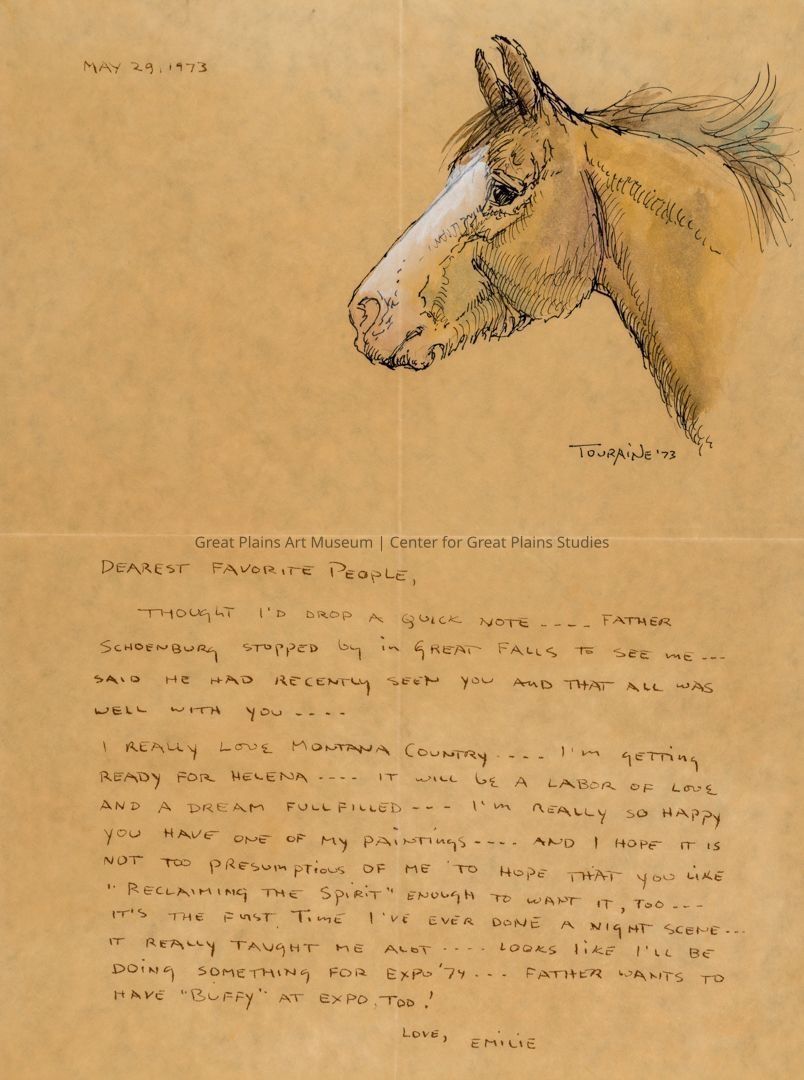 MAY 29, 1973
TOURAINE '73
Great Plains Art Museum | Center for Great Plains Studies
DEAREST FAVORITE PEOPLE,
THOUGHT I'D DROP A QUICK NOTE ---- FATHER
SCHOENBURG STOPPED by in GREAT FALLS TO SEE ME ---
SAID HE HAD RECENTLY SEEN YOU AND THAT ALL WAS
WELL WITH YOU ----
I REALLY LOVE MONTANA COUNTRY ---- I'm GETTING
READY FOR HELENA ---- IT WILL BE A LABOR OF LOVE
AND A DREAM FULLFILLED --- I'M REALLY SO HAPPY
YOU HAVE ONE OF MY PAINTINGS ---- AND I HOPE IT IS
NOT TOO PRESUMPTIOUS OF ME TO HOPE THAT YOU LIKE
"RECLAIMING THE SPIRIT" ENOUGH TO WANT IT, TOO ---
IT'S THE FIRST TIME I'VE EVER DONE A NIGHT SCENE ---
IT REALLY TAUGHT ME ALOT ---- LOOKS LIKE I'LL BE
DOING SOMETHING FOR EXPO '74 --- FATHER WANTS TO
HAVE "BUFFY" AT EXPO, TOO!
LOVE, EMILIE